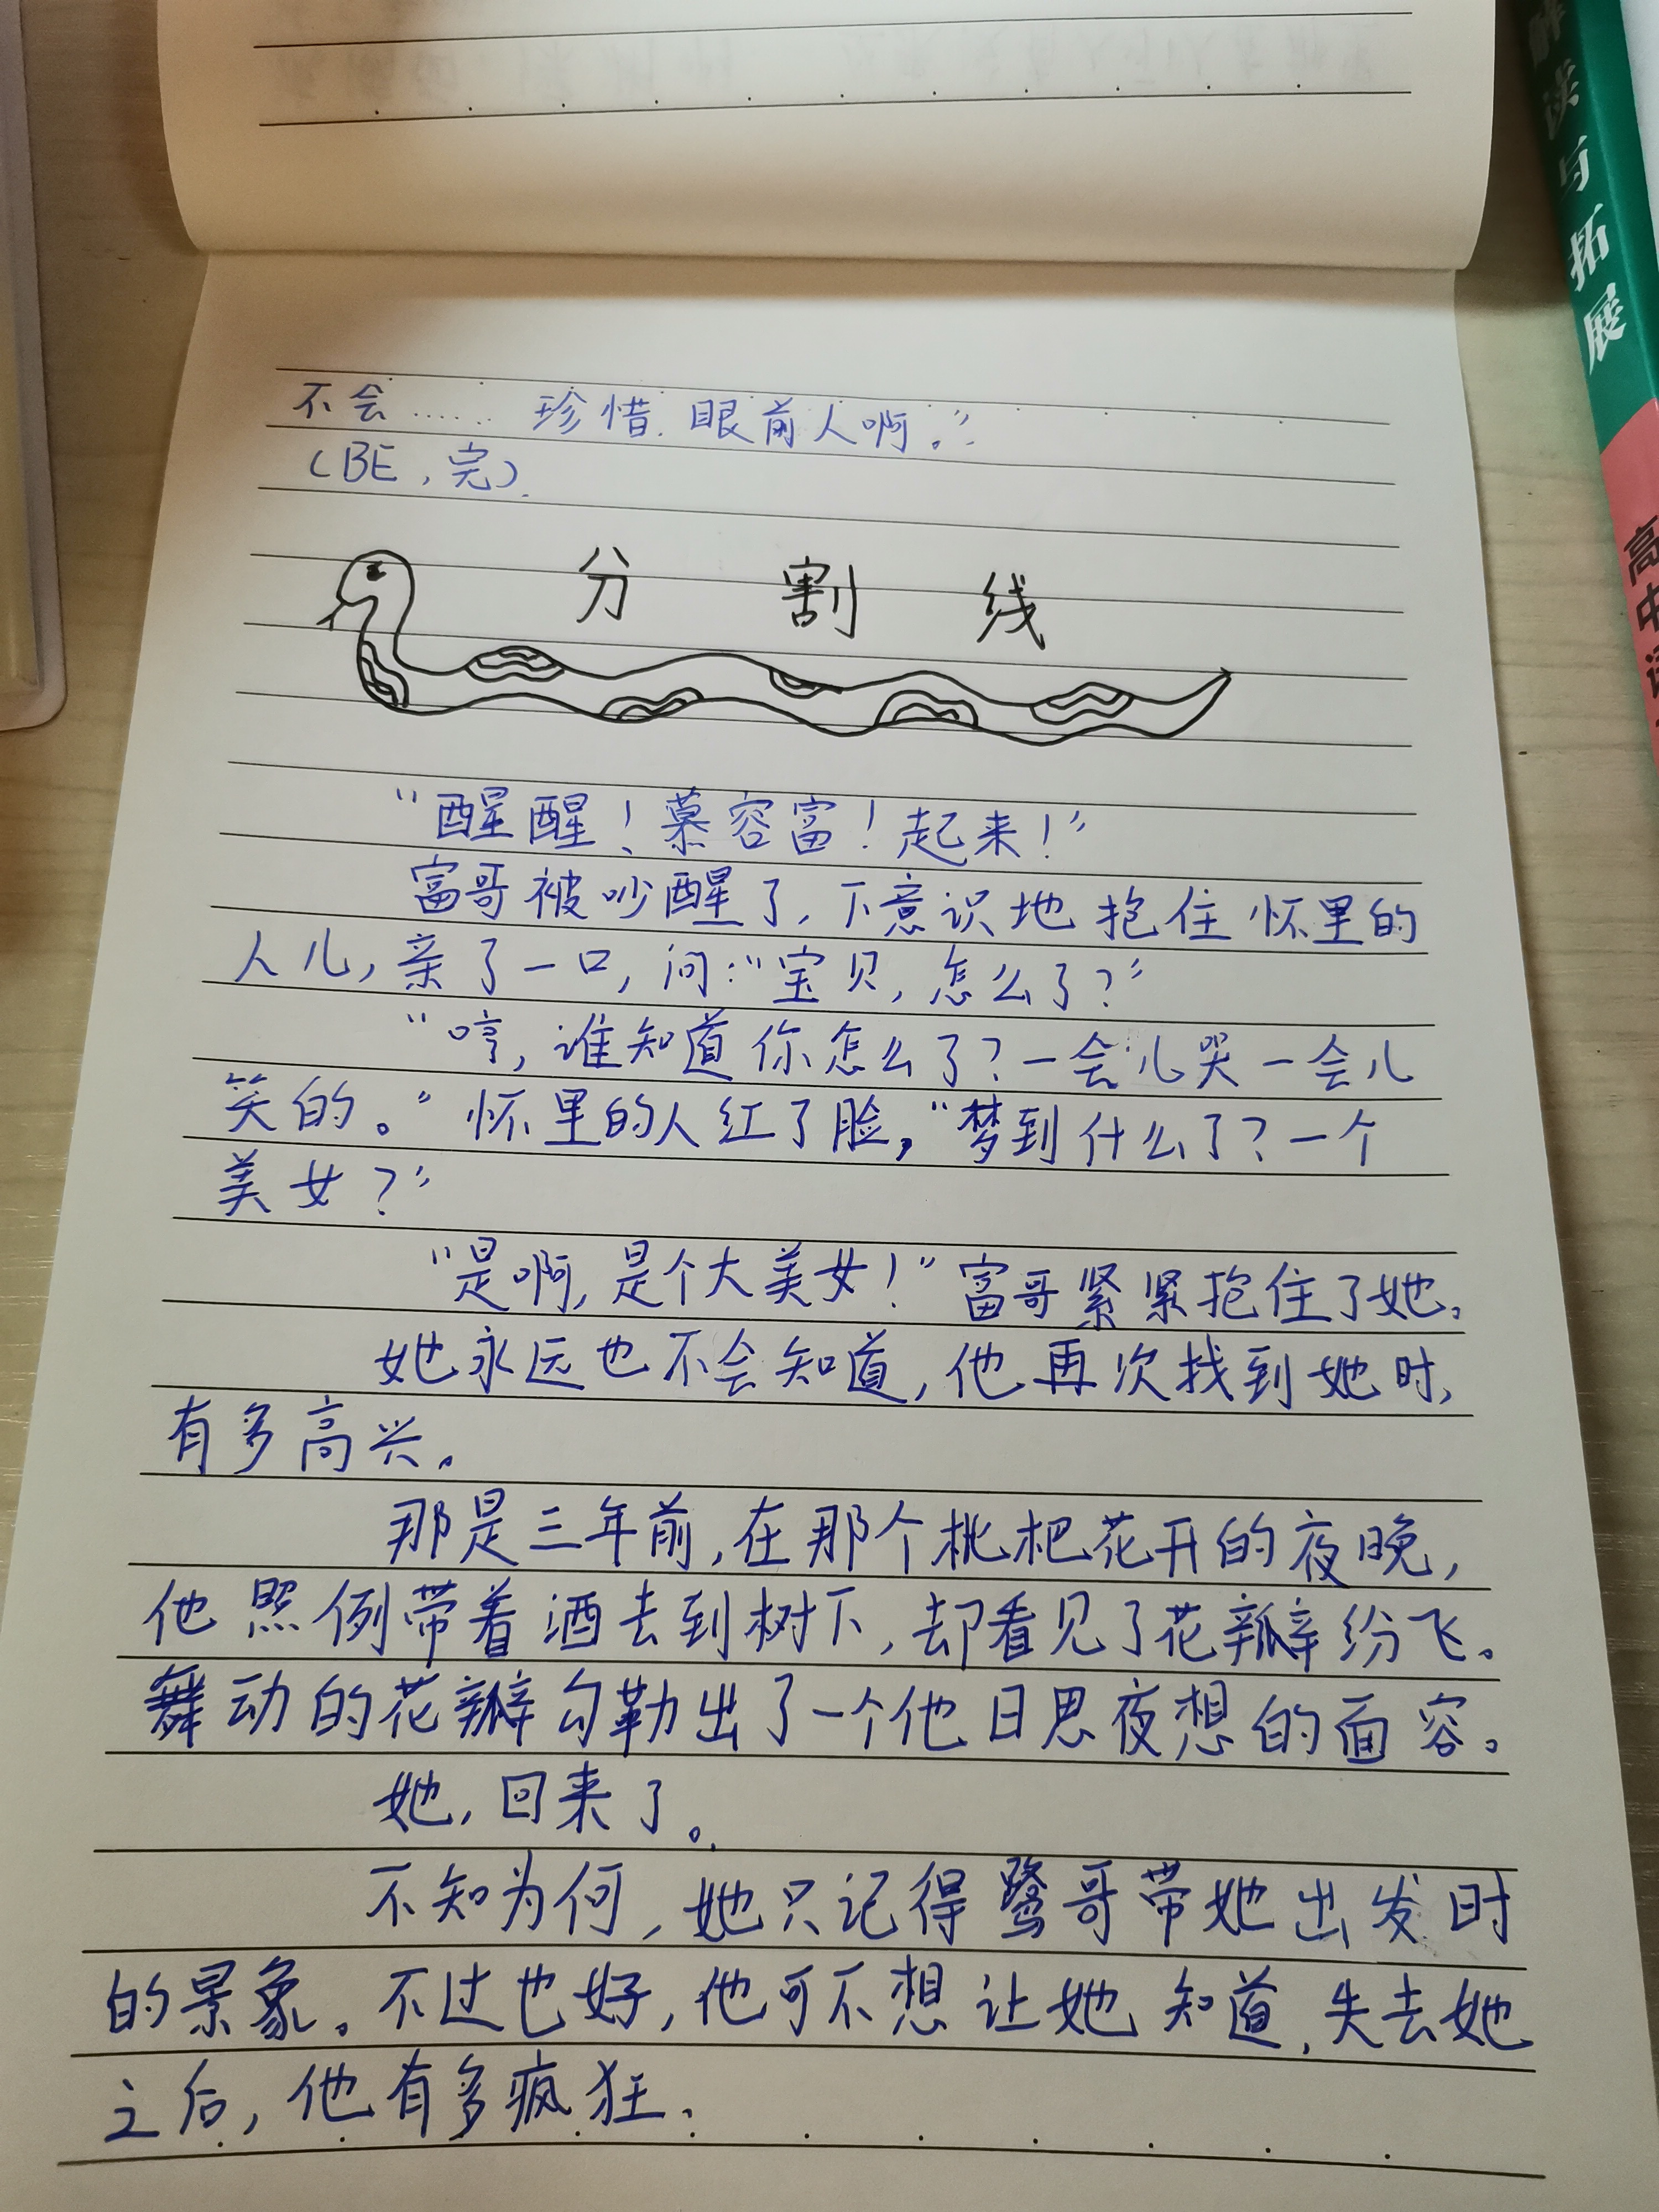 不会…… 珍惜眼前人啊。”
（BE，完）
分割线
“醒醒！慕容富！起来！”
富哥被吵醒了，下意识地抱住怀里的
人儿，亲了一口，问：“宝贝，怎么了？”
“哼，谁知道你怎么了？一会儿哭一会儿
笑的。”怀里的人红了脸，“梦到什么了？一个
美女？”
“是啊，是个大美女！”富哥紧紧抱住了她。
她永远也不会知道，他再次找到她时，
有多高兴。
那是三年前，在那个枇杷花开的夜晚，
他照例带着酒去到树下，却看见了花瓣纷飞。
舞动的花瓣勾勒出了一个他日思夜想的面容。
她，回来了。
不知为何，她只记得鹭哥带她出发时
的景象。不过也好，他可不想让她知道，失去她
之后，他有多疯狂。
解读与拓展
高中语